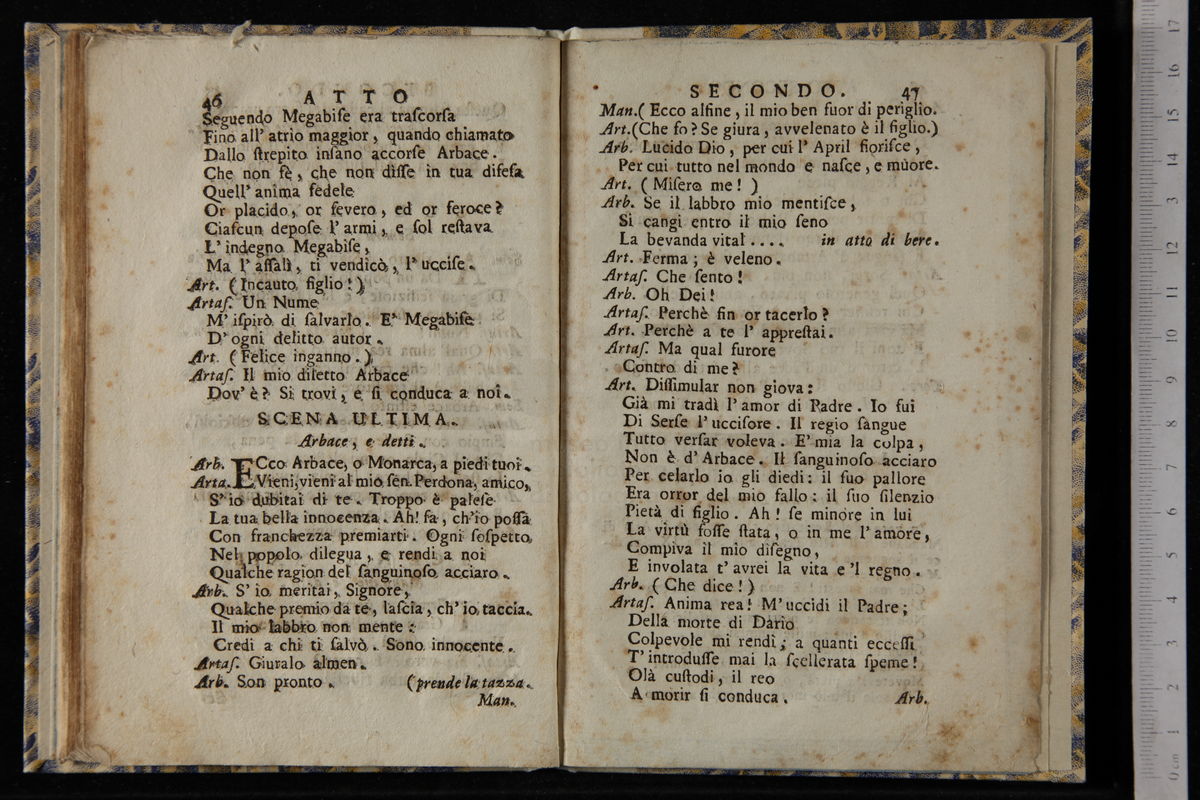 46 ATTO
Seguendo Megabiſe era traſcorſa
Fino all' atrio maggior, quando chiamato
Dallo ſtrepito inſano accorſe Arbace.
Che non fè, che non diſſe in tua difeſa
Quell' anima fedele
Or placido, or ſevero, ed or feroce?
Ciaſcun depoſe l' armi, e ſol reſtava
L' indegno Megabiſe,
Ma l' aſſalì, ti vendicò, l' ucciſe.
Art. (Incauto figlio!)
Artaſ. Un Nume
M' iſpirò di ſalvarlo. E' Megabiſe
D' ogni delitto autor.
Art. (Felice inganno.)
Artaſ. Il mio diletto Arbace
Dov' è? Si trovi, e ſi conduca a noi.
SCENA ULTIMA.
Arbace, e detti.
Arb. ECco Arbace, o Monarca, a piedi tuoi.
Arta. Vieni, vieni al mio ſen. Perdona, amico,
S' io dubitai di te. Troppo è paleſe
La tua bella innocenza. Ah! fa, ch'io poſſa
Con franchezza premiarti. Ogni ſoſpetto
Nel popolo dilegua, e rendi a noi
Qualche ragion del ſanguinoſo acciaro.
Arb. S' io meritai, Signore,
Qualche premio da te, laſcia, ch' io taccia.
Il mio labbro non mente:
Credi a chi ti ſalvò. Sono innocente.
Artaſ. Giuralo almen.
Arb. Son pronto. (prende la tazza.
Man.
SECONDO. 47
Man. (Ecco alfine, il mio ben fuor di periglio.
Art. (Che fo? Se giura, avvelenato è il figlio.)
Arb. Lucido Dio, per cui l' April fioriſce,
Per cui tutto nel mondo e naſce, e muore.
Art. (Miſero me!)
Arb. Se il labbro mio mentiſce,
Si cangi entro il mio ſeno
La bevanda vital.... in atto di bere.
Art. Ferma; è veleno.
Artaſ. Che ſento!
Arb. Oh Dei!
Artaſ. Perchè fin or tacerlo?
Art. Perchè a te l' appreſtai.
Artaſ. Ma qual furore
Contro di me?
Art. Diſſimular non giova:
Già mi tradì l' amor di Padre. Io fui
Di Serſe l' ucciſore. Il regio ſangue
Tutto verſar voleva. E' mia la colpa,
Non è d' Arbace. Il ſanguinoſo acciaro
Per celarlo io gli diedi: il ſuo pallore
Era orror del mio fallo: il ſuo ſilenzio
Pietà di figlio. Ah! ſe minore in lui
La virtù foſſe ſtata, o in me l' amore,
Compiva il mio diſegno,
E involata t' avrei la vita e 'l regno.
Arb. (Che dice!)
Artaſ. Anima rea! M' uccidi il Padre;
Della morte di Dario
Colpevole mi rendi; a quanti ecceſſi
T' introduſſe mai la ſcellerata ſpeme!
Olà cuſtodi, il reo
A morir ſi conduca. Arb.